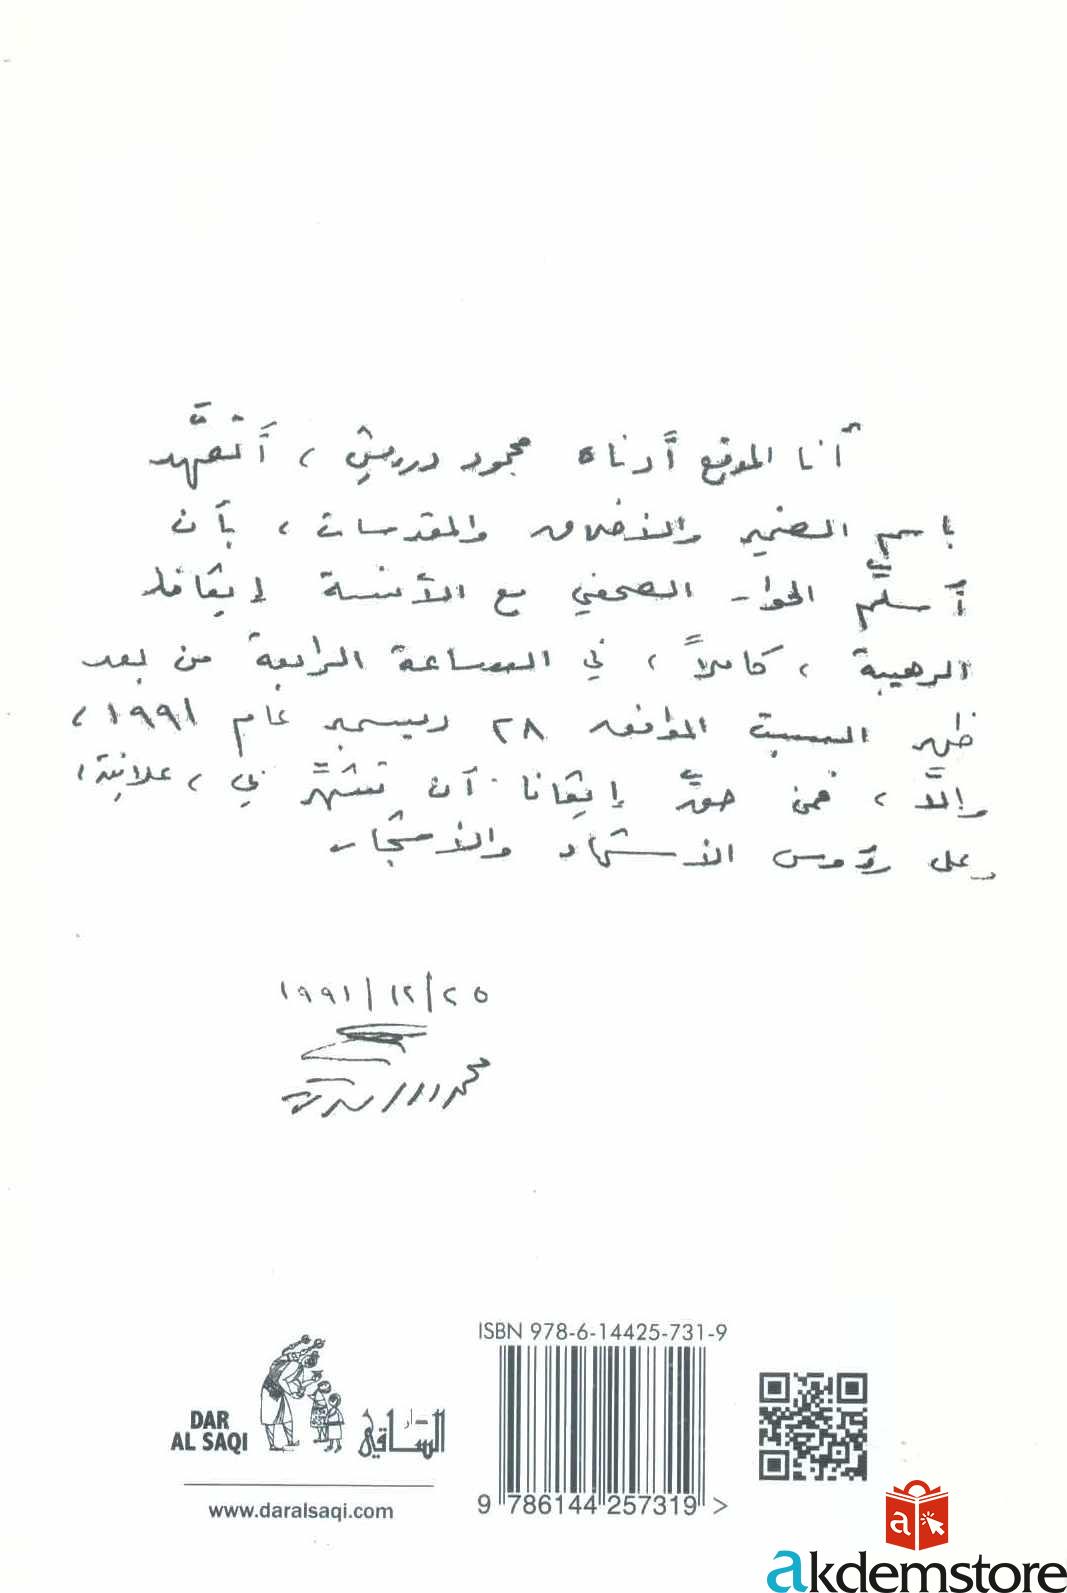 أنا الموقع أدناه محمود درويش ، أتعهَّد
باسم الضمير والأخلاق والمقدسات ، بأن
أسلِّم الحوار الصحفي مع الآنسة إيڤانا
الرهيبة ، كاملاً ، في الساعة الرابعة من بعد
ظهر السبت الموافق ٢٨ ديسمبر عام ١٩٩١ ،
وإلاَّ ، فمن حقِّ إيڤانا أن تشهِّر بي ، علانية ،
وعلى رؤوس الأشهاد والأشجار
٢٥/١٢/١٩٩١
محمود درويش
ISBN 978-6-14425-731-9
DAR
AL SAQI
دار
الساقي
www.daralsaqi.com
9 786144 257319 >
a
akdemstore